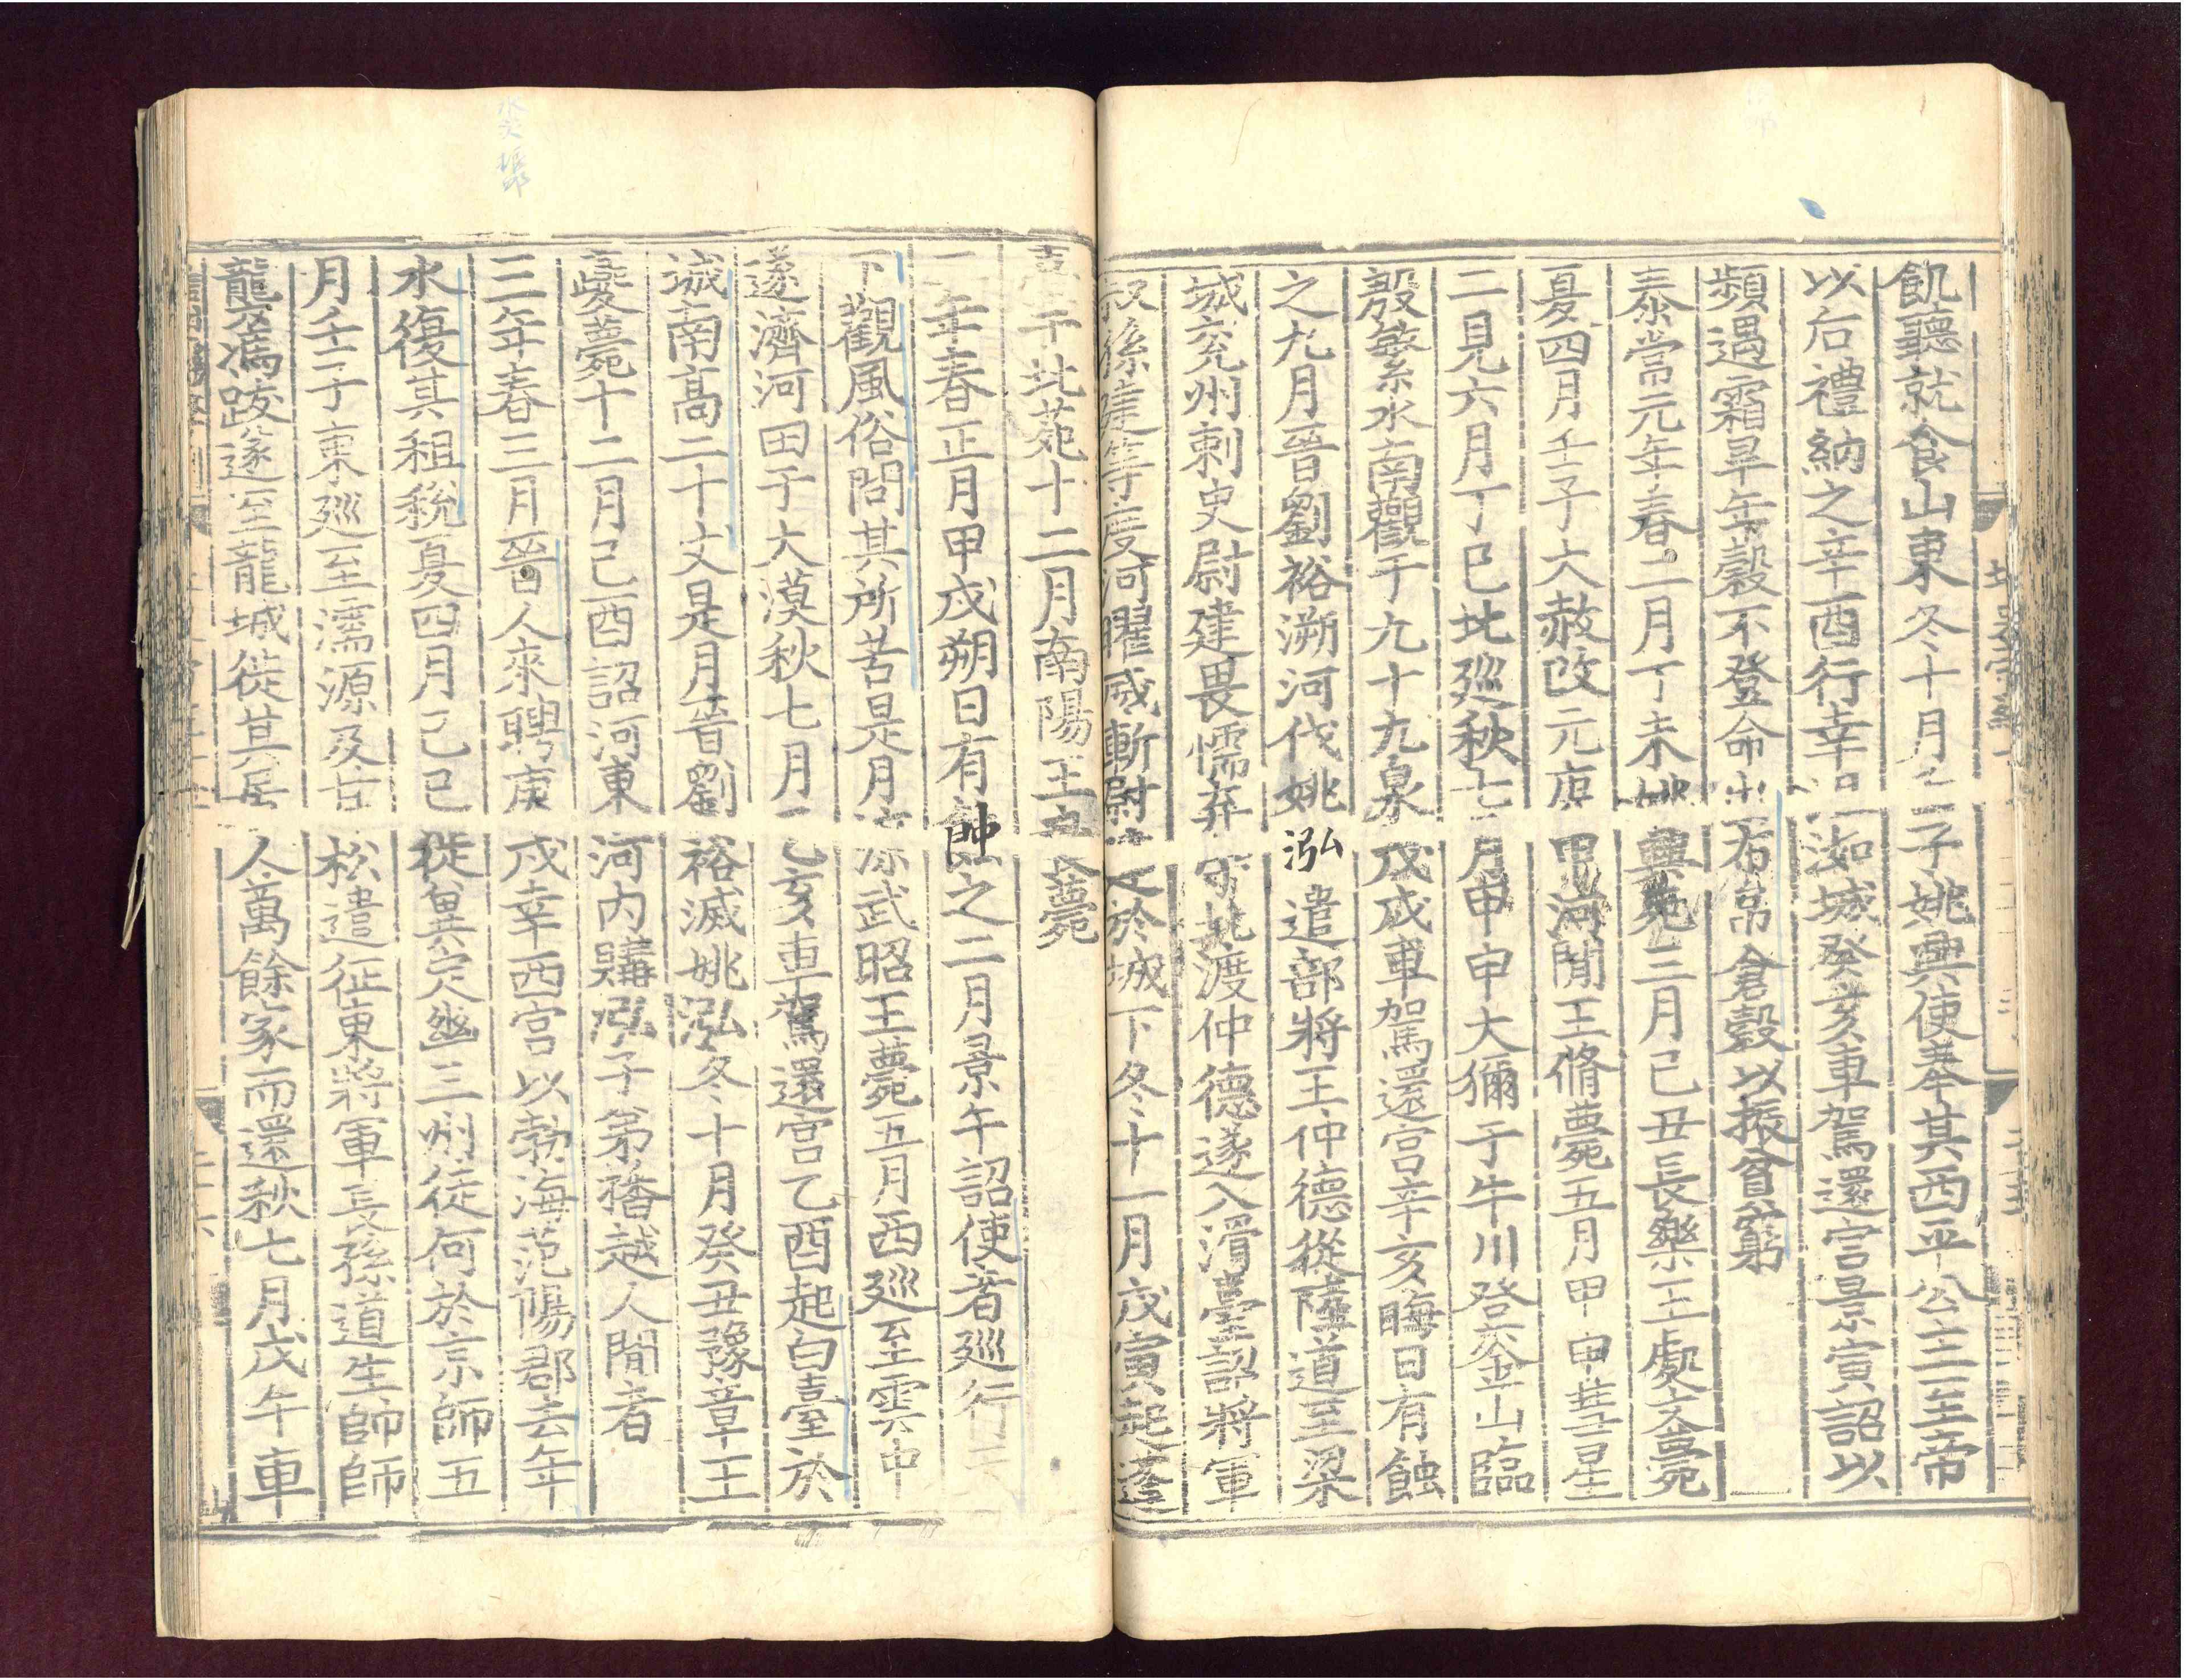 飢聽就食山東冬十月壬子姚興使奉其西平公主至帝
以后禮納之辛酉行幸沮洳城癸亥車駕還宮景寅詔以
頻遇霜旱年穀不登命出布帛倉穀以振貧窮
泰常元年春二月丁未姚興死三月己丑長樂王處文薨
夏四月壬子大赦改元庚申河閒王脩薨五月甲申彗星
二見六月丁巳北巡秋七月甲申大獮于牛川登釜山臨
殷繁水南觀于九十九泉戊戌車駕還宮辛亥晦日有蝕
之九月晉劉裕溯河伐姚泓遣部將王仲德從陸道至梁
城兖州刺史尉建畏懦弃守北渡仲德遂入滑臺詔將軍
叔孫建等度河曜威斬尉建於城下冬十一月戊寅起蓬
臺于北苑十二月南陽王良薨
二年春正月甲戌朔日有蝕之二月景午詔使者巡行天
下觀風俗問其所苦是月凉武昭王薨五月西巡至雲中
遂濟河田于大漠秋七月乙亥車駕還宮乙酉起白臺於
城南高二十丈是月晉劉裕滅姚泓冬十月癸丑豫章王
夔薨十二月己酉詔河東河內購泓子弟播越人閒者
三年春三月晉人來聘庚戌幸西宮以勃海范陽郡去年
水復其租稅夏四月己巳徙冀定幽三州徒何於京師五
月壬子東巡至濡源及甘松遣征東將軍長孫道生帥師
襲馮跋遂至龍城徙其居人萬餘家而還秋七月戊午車